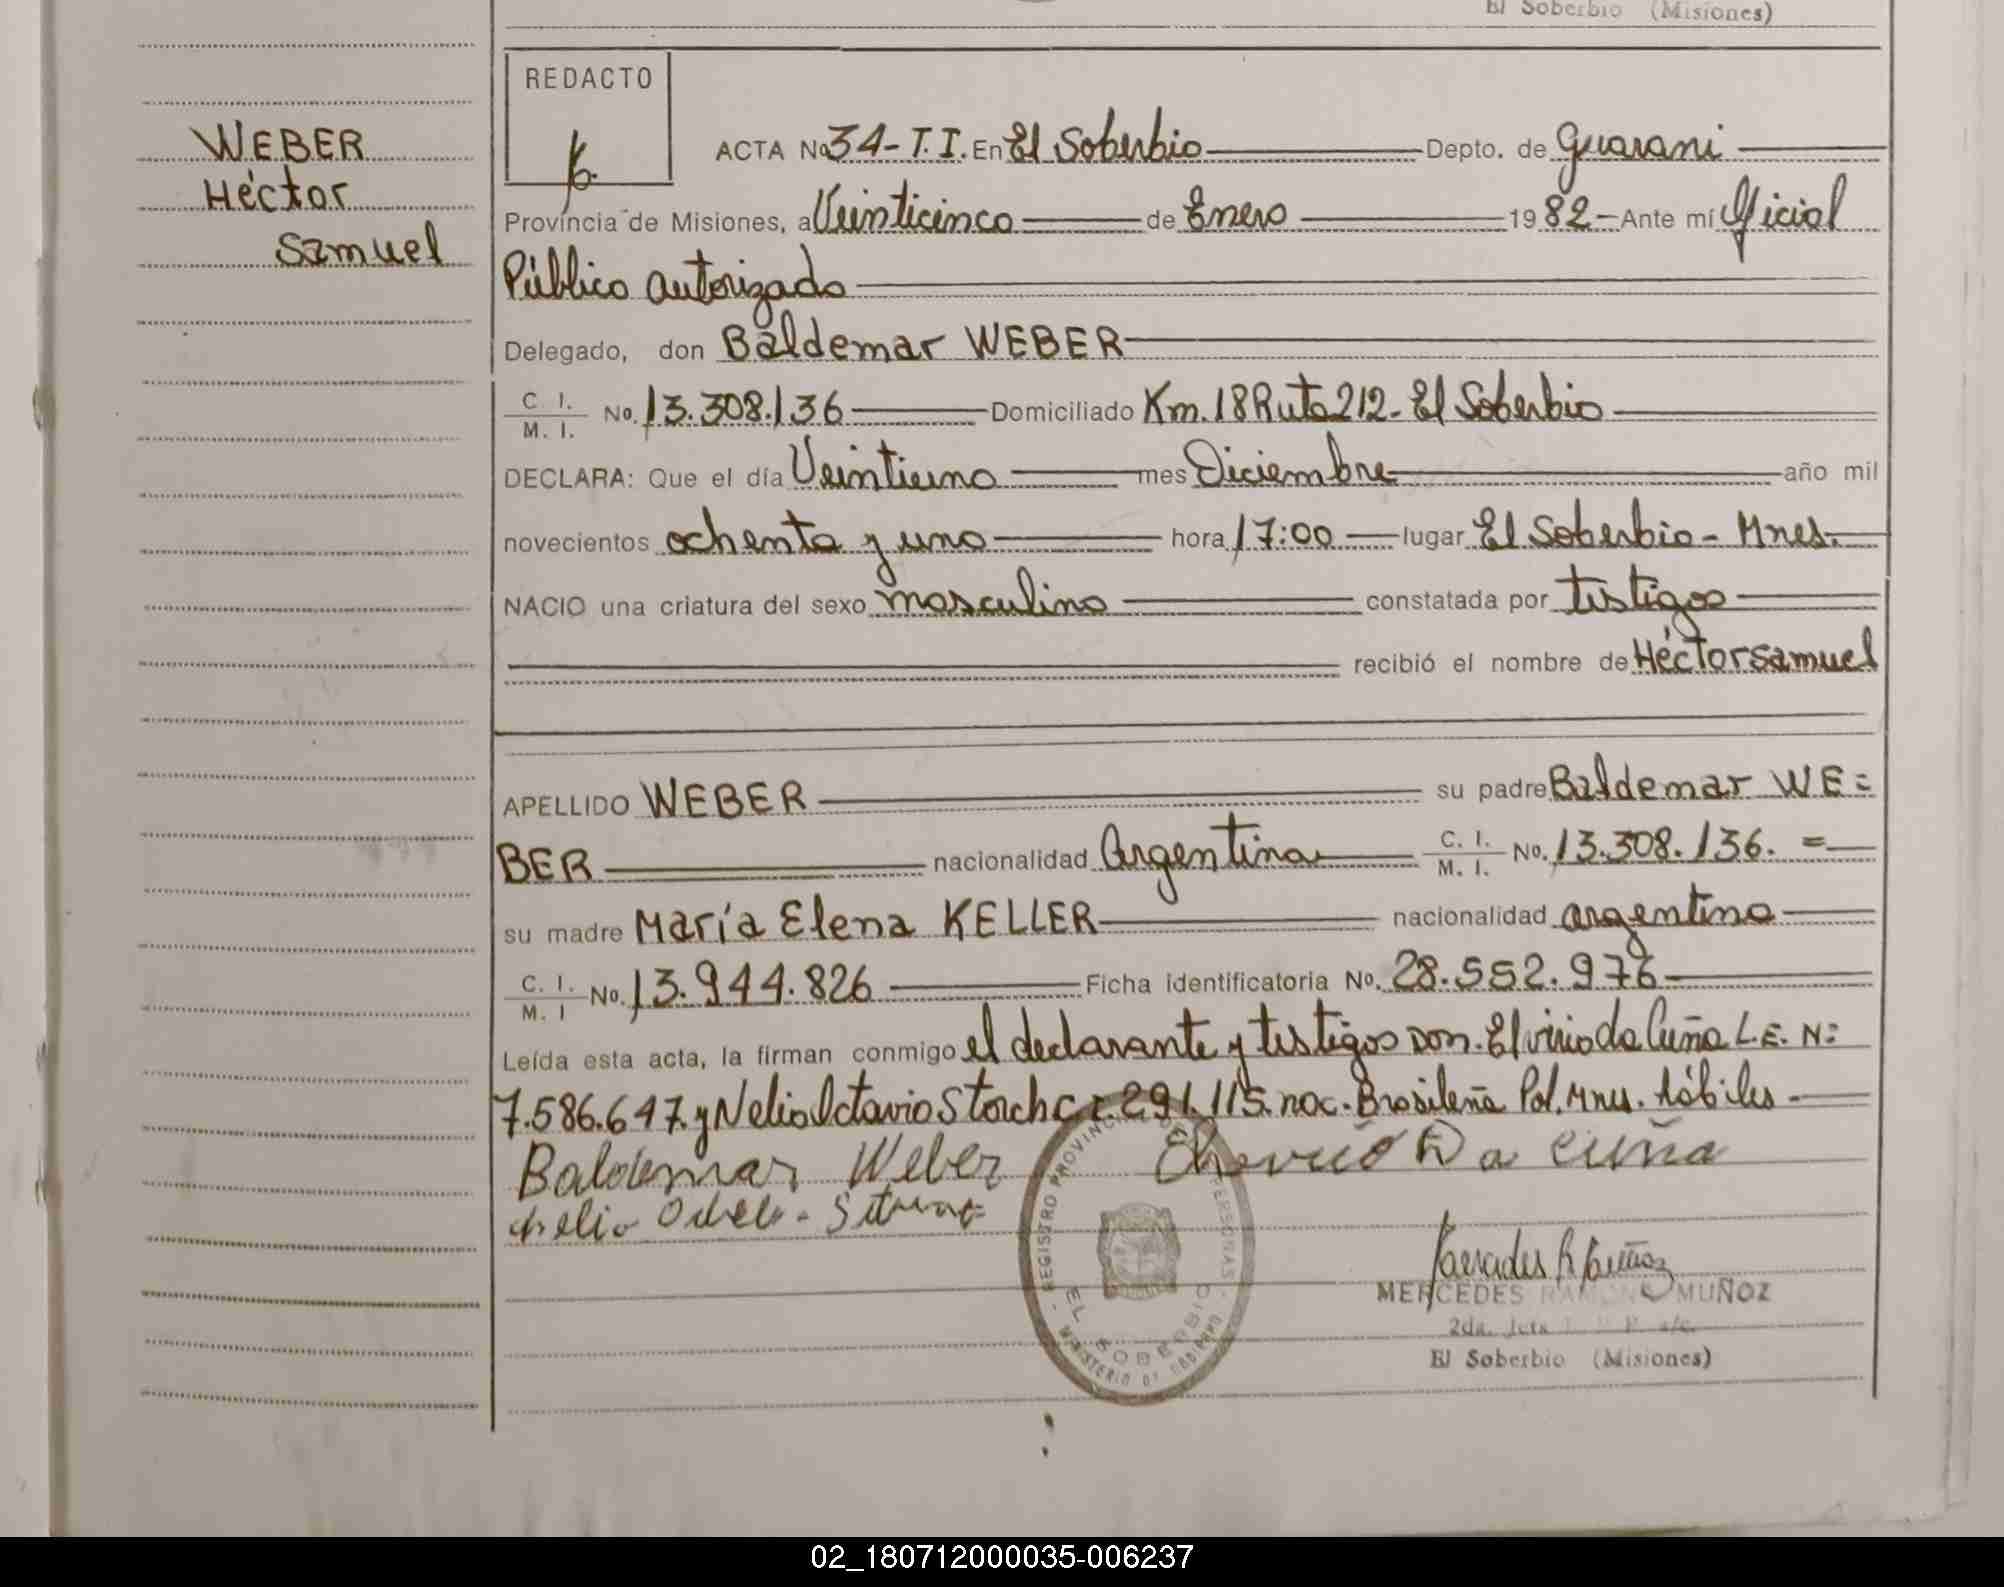 El Soberbio (Misiones)
REDACTO
WEBER
Héctor
Samuel
ACTA No 34-T.I. En El Soberbio Depto. de Guarani
Provincia de Misiones, a Veinticinco de Enero 1982- Ante mí Oficial
Público autorizado
Delegado, don Baldemar WEBER
C. I. M. I. No. 13.308.136 Domiciliado Km. 18 Ruta 212- El Soberbio
DECLARA: Que el día Veintiuno mes Diciembre año mil
novecientos ochenta y uno hora 17:00 lugar El Soberbio - Mnes.
NACIO una criatura del sexo masculino constatada por testigos
recibió el nombre de Héctor Samuel
APELLIDO WEBER su padre Baldemar WE=
BER nacionalidad Argentina C. I. M. I. No. 13.308.136. =
su madre María Elena KELLER nacionalidad argentina
C. I. M. I No. 13.944.826 Ficha identificatoria No. 28.552.976
Leída esta acta, la firman conmigo el declarante y testigos Don. Elvirio da Cuña L.E. N:
7.586.647. y Nelio Octavio Storch C.I. 291.115. nac. Brasileña Pol. Mnes. hábiles -
Baldemar Weber Da Cuña
REGISTRO PROVINCIAL DE PERSONAS
EL SOBERBIO
MINISTERIO DE GOBIERNO
MERCEDES RAMONA MUÑOZ
El Soberbio (Misiones)
02_180712000035-006237